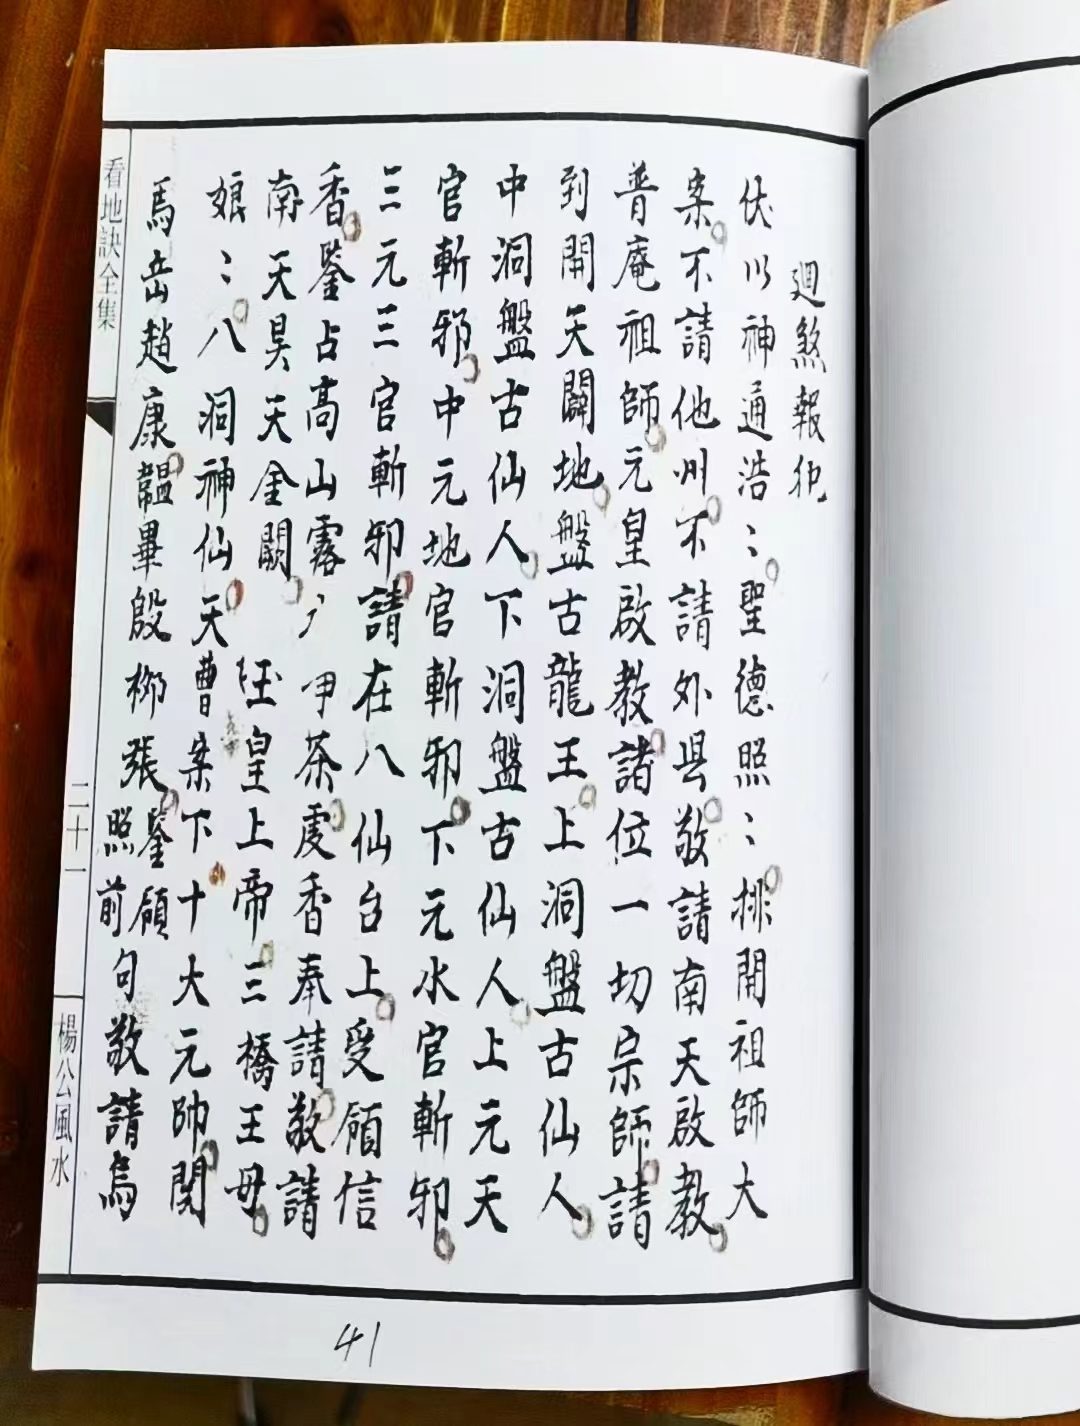 廻煞報犯
伏以神通浩〻聖德照〻排開祖師大
案不請他州不請外县敬請南天啟教
普庵祖師元皇啟教諸位一切宗師請
到開天闢地盤古龍王上洞盤古仙人
中洞盤古仙人下洞盤古仙人上元天
官斬邪中元地官斬邪下元水官斬邪
三元三官斬邪請在八仙台上受領信
香鑒占高山雾〻茶香奉請敬請
南天昊天金闕玉皇上帝三橋王母
娘〻八洞神仙天曹案下十大元帥関
馬岳趙康畢殷柳張鑒領
照前句敬請烏
看地訣全集
二十一
楊公風水
41